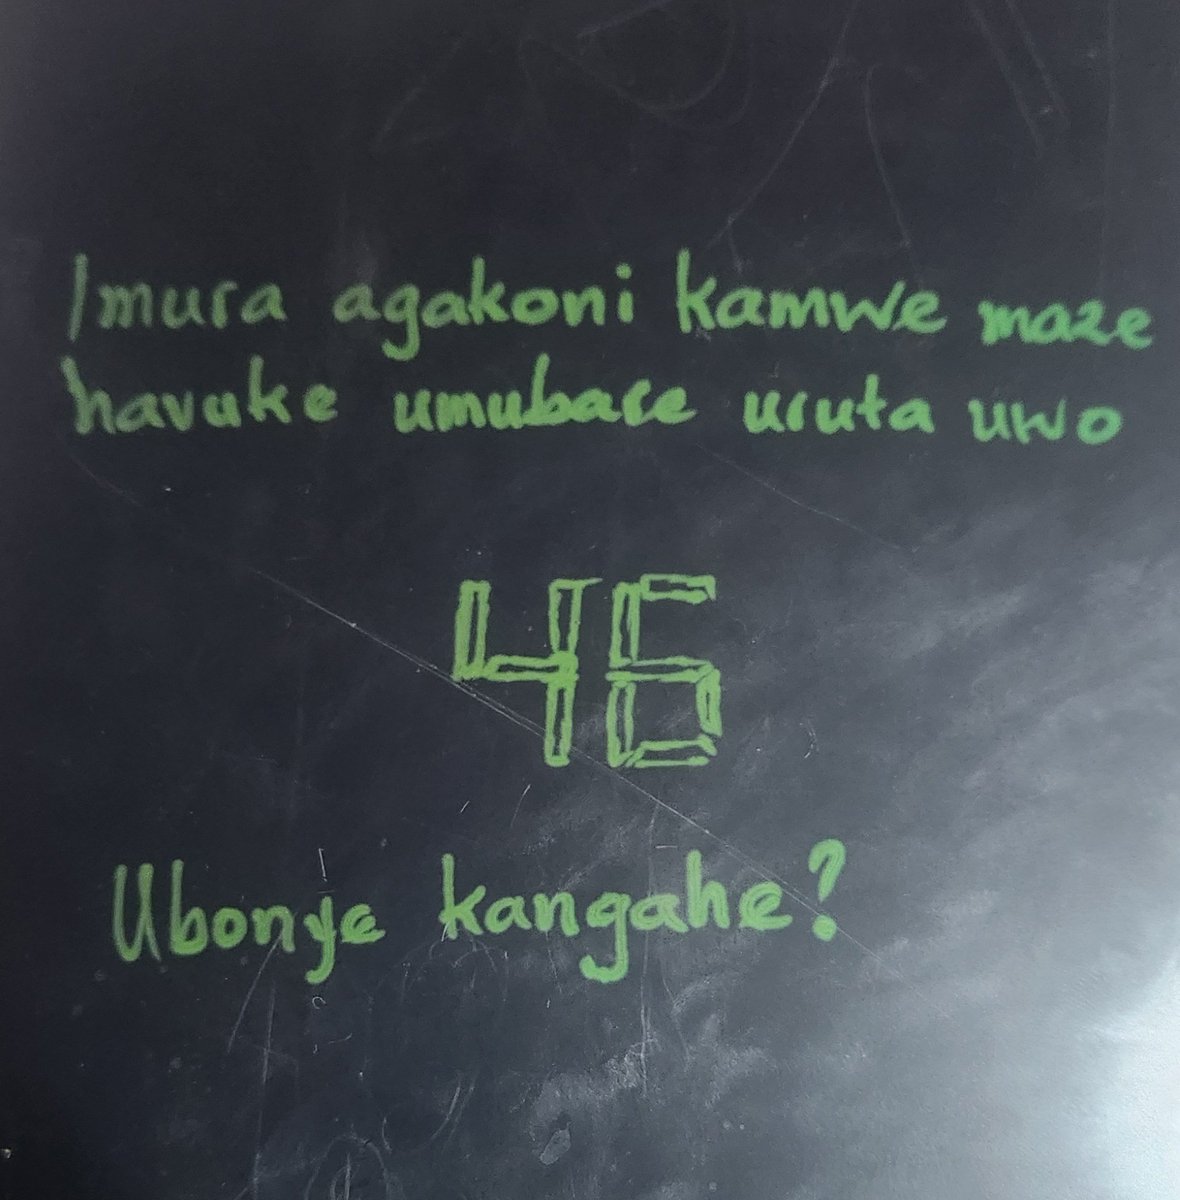 Imura agakoni kamwe maze
havuke umubare uruta uwo
46
Ubonye kangahe?